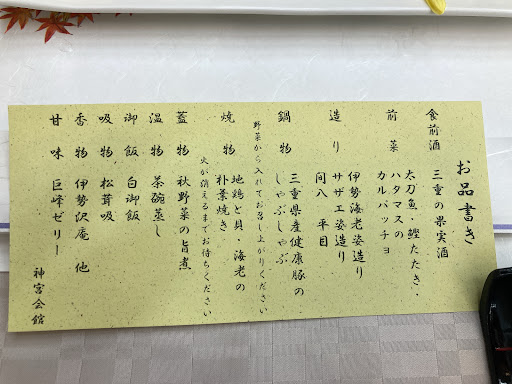 お品書き
食前酒　三重の果実酒
前菜　太刀魚・鰹たたき・
ハタマスの
カルパッチョ
造り　伊勢海老姿造り
サザエ姿造り
間八　平目
鍋物　三重県産健康豚の
しゃぶしゃぶ
野菜から入れてお召し上がりください
焼物　地鶏と貝・海老の
朴葉焼き
火が消えるまでお待ちください
蓋物　秋野菜の旨煮
温物　茶碗蒸し
御飯　白御飯
吸物　松茸吸
香物　伊勢沢庵　他
甘味　巨峰ゼリー
神宮会館